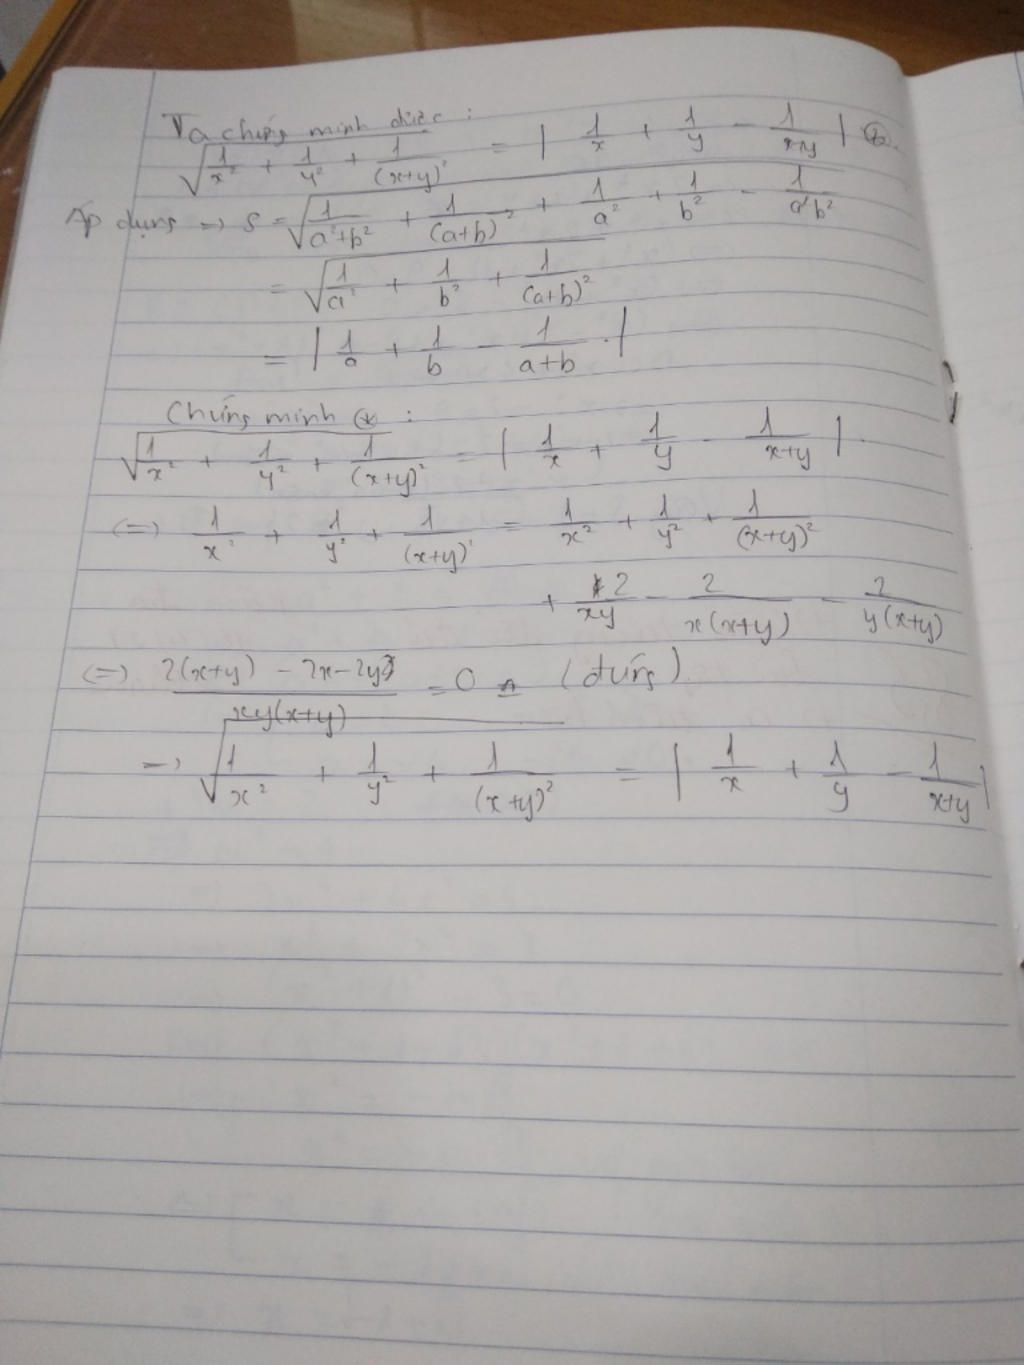 Ta chứng minh được :
√(1/x² + 1/y² + 1/(x+y)²) = | 1/x + 1/y - 1/(x+y) | (*).
Áp dụng => S = √(1/(a²+b²) + 1/(a+b)² + 1/a² + 1/b² - 1/(a²b²))
= √(1/a² + 1/b² + 1/(a+b)²)
= | 1/a + 1/b - 1/(a+b) . |
Chứng minh (*) :
√(1/x² + 1/y² + 1/(x+y)²) = | 1/x + 1/y - 1/(x+y) | .
(=) 1/x² + 1/y² + 1/(x+y)² = 1/x² + 1/y² + 1/(x+y)²
+ 2/(xy) - 2/(x(x+y)) - 2/(y(x+y))
(=) (2(x+y) - 2x - 2y)/(xy(x+y)) = 0 (đúng)
=> √(1/x² + 1/y² + 1/(x+y)²) = | 1/x + 1/y - 1/(x+y) |